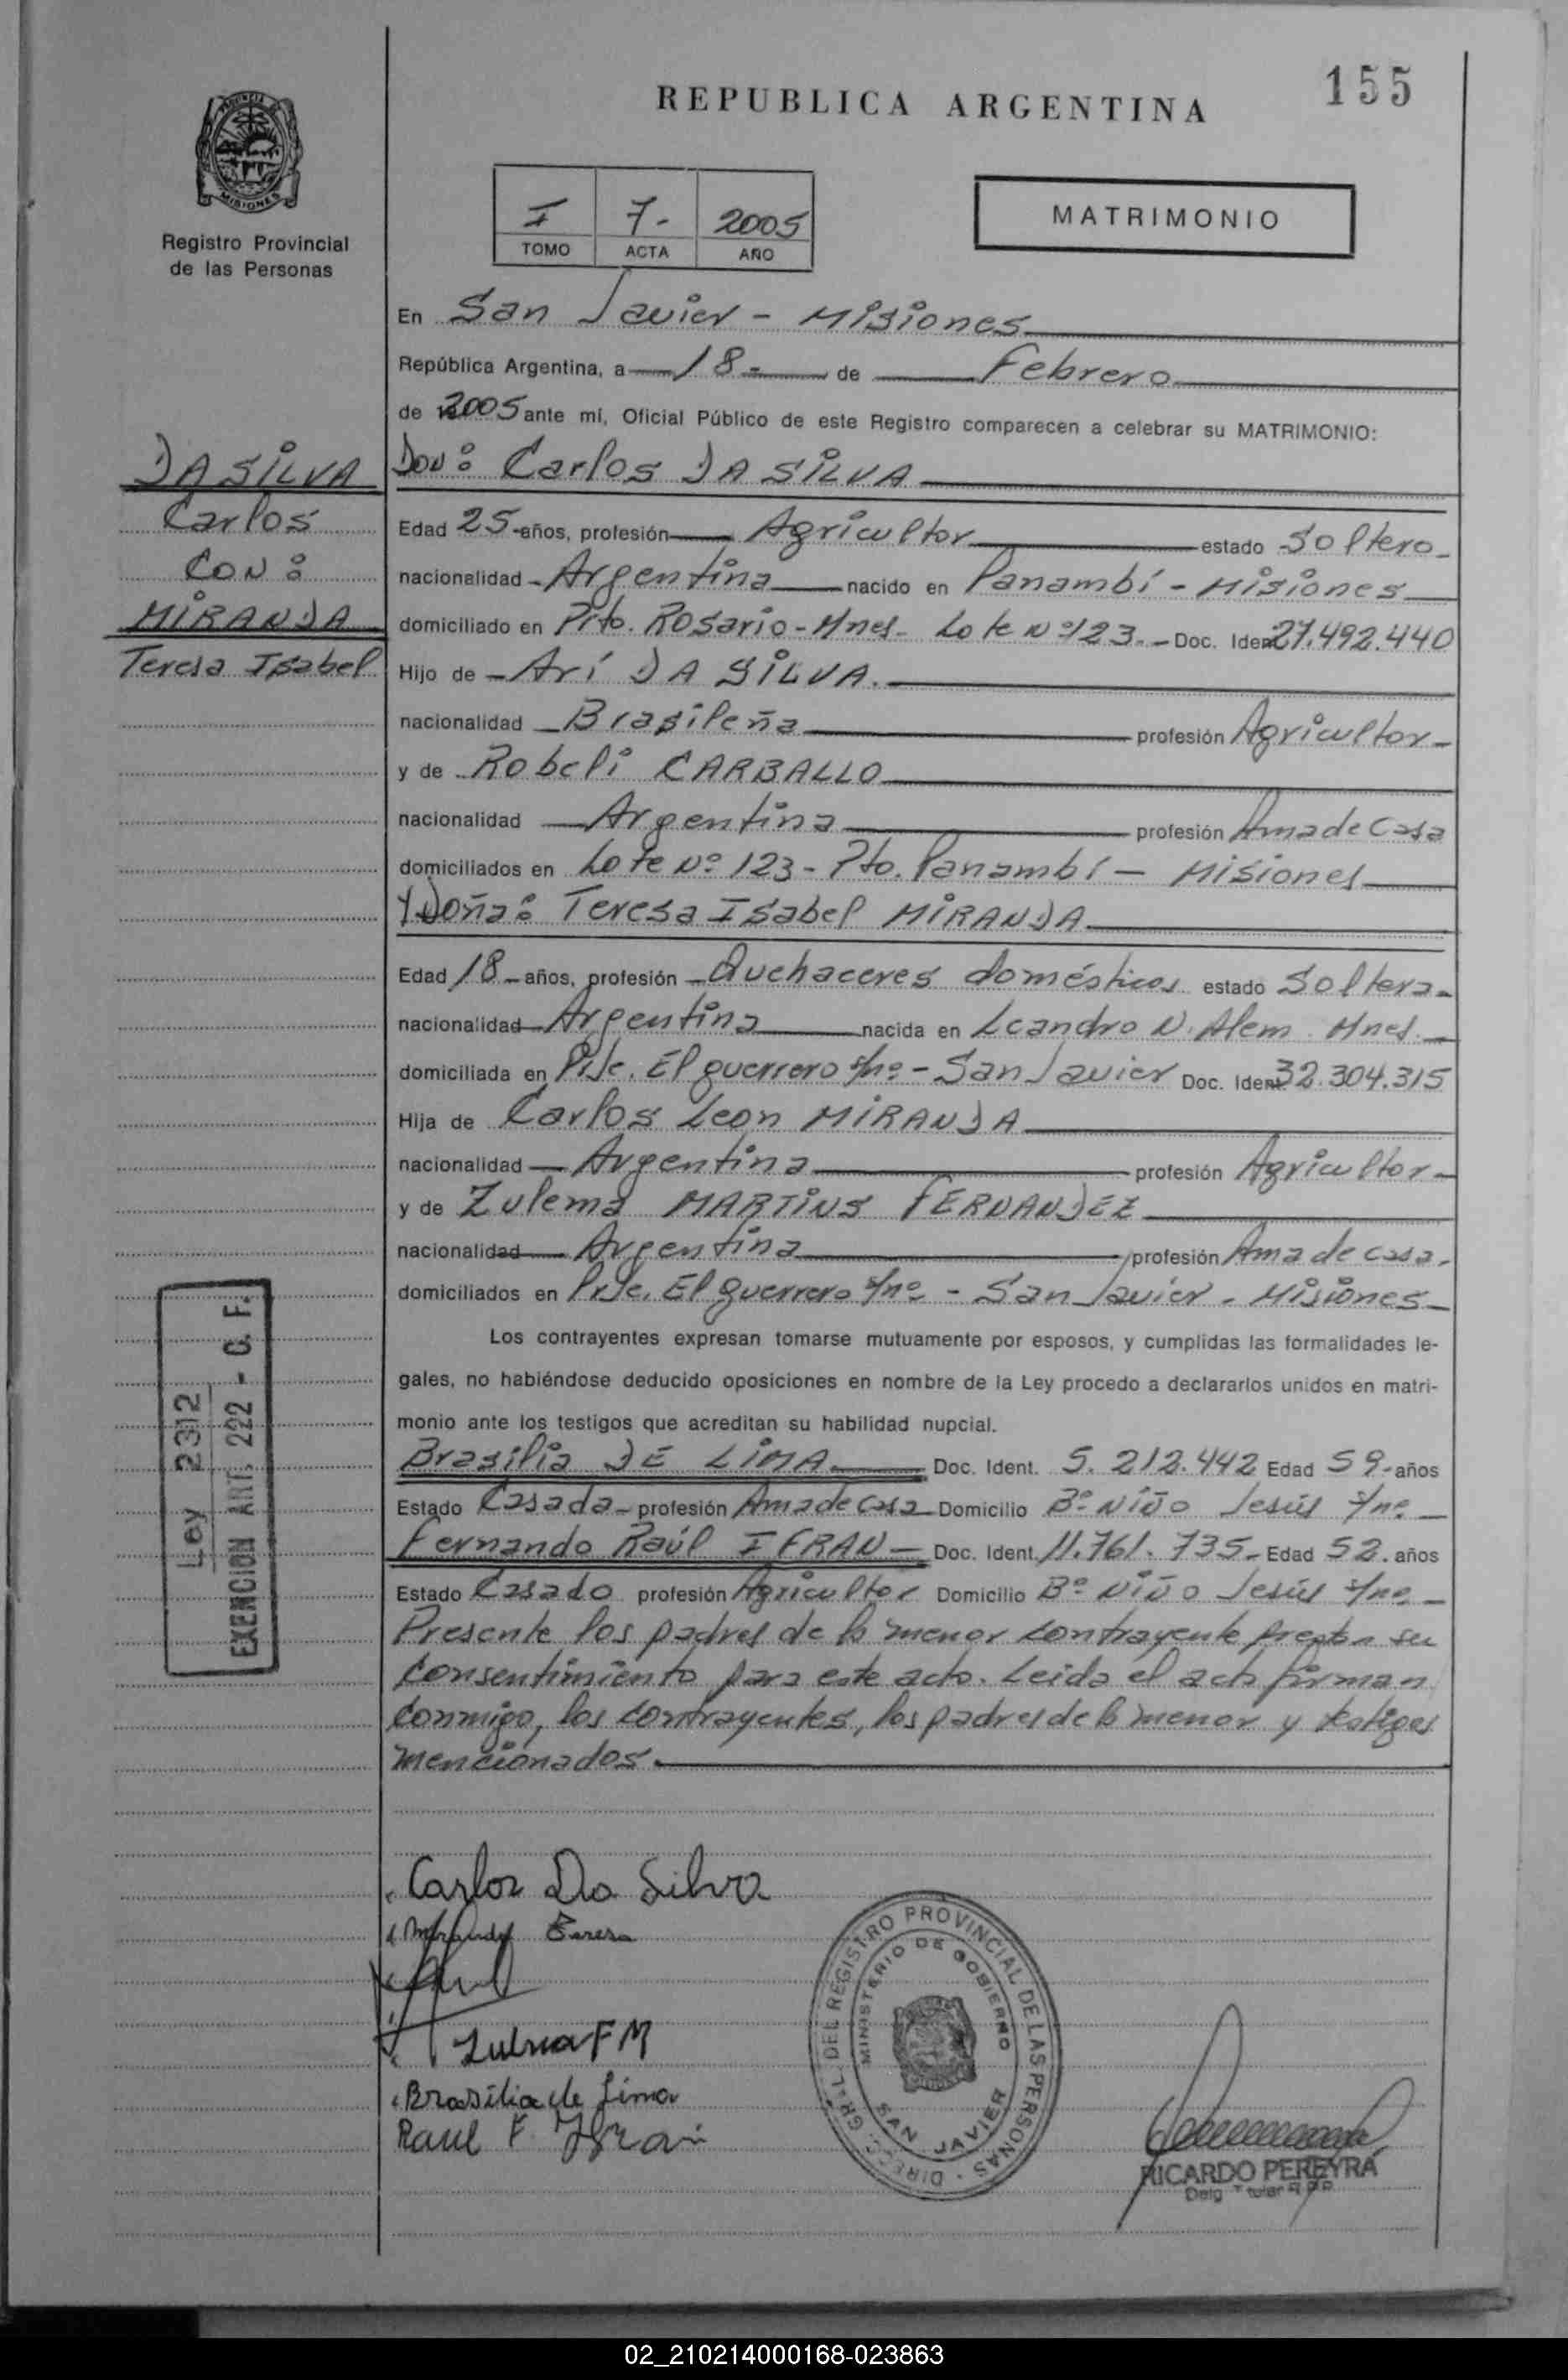 155
REPUBLICA ARGENTINA
MISIONES
Registro Provincial
de las Personas
I 7- 2005
TOMO ACTA AÑO
MATRIMONIO
En San Javier - Misiones
República Argentina, a 18- de Febrero
de 2005 ante mí, Oficial Público de este Registro comparecen a celebrar su MATRIMONIO:
DA SILVA
Carlos
CON:
MIRANDA
Teresa Isabel
Don: Carlos DA SILVA
Edad 25 años, profesión Agricultor estado Soltero
nacionalidad Argentina nacido en Panambí - Misiones
domiciliado en Pto. Rosario - Mnes- Lote Nº 123.- Doc. Ident. 27.492.440
Hijo de Arí DA SILVA.
nacionalidad Brasileña profesión Agricultor
y de Robeli CARBALLO
nacionalidad Argentina profesión Ama de Casa
domiciliados en Lote Nº 123 - Pto. Panambí - Misiones
Y Doña: Teresa Isabel MIRANDA
Edad 18 años, profesión Quehaceres domésticos estado Soltera
nacionalidad Argentina nacida en Leandro N. Alem Mnes.
domiciliada en El guerrero s/nº - San Javier Doc. Ident. 32.304.315
Hija de Carlos Leon MIRANDA
nacionalidad Argentina profesión Agricultor
y de Zulema MARTINS FERNANDEZ
nacionalidad Argentina profesión Ama de casa.
domiciliados en El guerrero s/nº - San Javier - Misiones
Los contrayentes expresan tomarse mutuamente por esposos, y cumplidas las formalidades le-
gales, no habiéndose deducido oposiciones en nombre de la Ley procedo a declararlos unidos en matri-
monio ante los testigos que acreditan su habilidad nupcial.
Brasilia DE LIMA Doc. Ident. 5.212.442 Edad 59 años
Estado Casada profesión Ama de Casa Domicilio Bº Niño Jesús s/nº
Fernando Raúl IFRAN Doc. Ident. 11.761.735 Edad 52. años
Estado Casado profesión Agricultor Domicilio Bº Niño Jesús s/nº
Presente los padres de la menor contrayente prestan su
consentimiento para este acto. Leida el acta firman
conmigo, los contrayentes, los padres de la menor y testigos
mencionados.
Ley 2312
EXENCION ART. 222 - C. F.
Carlos Da Silva
Miranda Teresa
Zulma F M
Brasilia de Lima
Raul F. Ifran
DIRECC. GRAL. DEL REGISTRO PROVINCIAL DE LAS PERSONAS
MINISTERIO DE GOBIERNO
SAN JAVIER
RICARDO PEREYRA